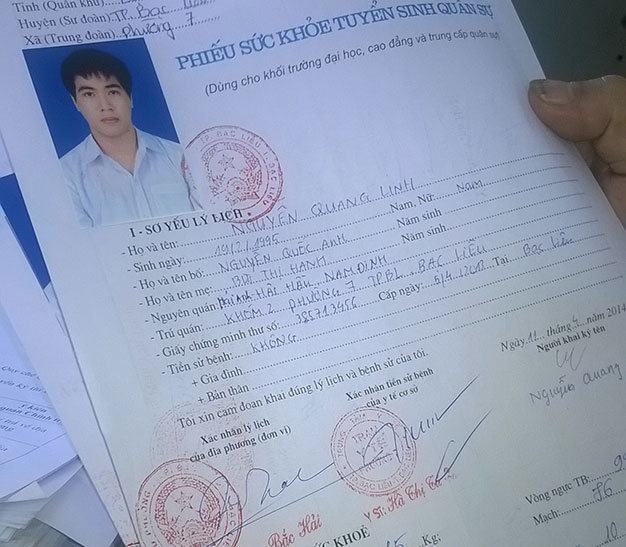 Tỉnh (Quân khu)
Huyện (Sư đoàn) TP. Bạc Liêu
Xã (Trung đoàn) phường 7
PHIẾU SỨC KHỎE TUYỂN SINH QUÂN SỰ
(Dùng cho khối trường đại học, cao đẳng và trung cấp quân sự)
TP. BẠC LIÊU
I - SƠ YẾU LÝ LỊCH
- Họ và tên: NGUYỄN QUANG LINH Nam, Nữ: Nam
- Sinh ngày: 1995
- Họ và tên bố: NGUYỄN QUỐC ANH Năm sinh
- Họ và tên mẹ: BÙI THỊ HẠNH Năm sinh
- Nguyên quán: HẢI HẬU, NAM ĐỊNH
- Trú quán: KHÓM 2, PHƯỜNG 7, TPBL, BẠC LIÊU
- Giấy chứng minh thư số: 385743456 Cấp ngày: Tại Bạc Liêu
- Tiền sử bệnh: KHÔNG
+ Gia đình
+ Bản thân
Tôi xin cam đoan khai đúng lý lịch và bệnh sử của tôi.
Ngày 11 tháng 4 năm 2014
Người khai ký tên
Xác nhận lý lịch
của địa phương (đơn vị)
Xác nhận tiền sử bệnh
của y tế cơ sở
Nguyễn Quang
Bắc Hải
Hà Thị
SỨC KHOẺ
Kg;
Vòng ngực TB:
Mạch: 86
10